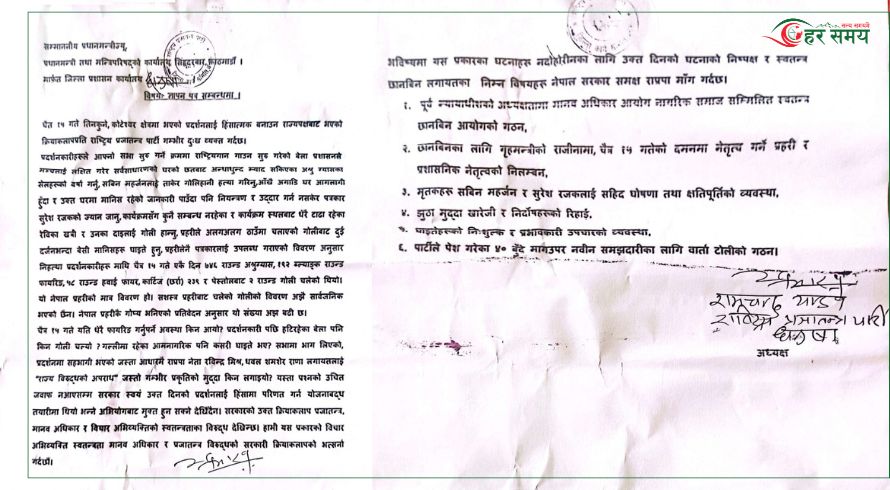 सम्माननीय प्रधानमन्त्रीज्यू,
प्रधानमन्त्री तथा मन्त्रिपरिषद्को कार्यालय सिंहदरबार, काठमाडौं ।
मार्फत जिल्ला प्रशासन कार्यालय
विषयः ज्ञापन पत्र सम्बन्धमा ।
चैत १५ गते तिनकुने, कोटेश्वर क्षेत्रमा भएको प्रदर्शनलाई हिंसात्मक बनाउन राज्यपक्षबाट भएको
क्रियाकलापप्रति राष्ट्रिय प्रजातन्त्र पार्टी गम्भीर दुःख व्यक्त गर्दछ।
प्रदर्शनकारीहरुले आफ्नो सभा सुरु गर्ने क्रममा राष्ट्रियगान गाउन सुरु गरेको बेला प्रशासनले
मञ्चलाई लक्षित गरेर सर्वसाधारणको घरको छतबाट अन्धाधुन्द म्याद सकिएका अश्रु ग्यासका
सेलहरुको वर्षा गर्नु, सबिन महर्जनलाई ताकेर गोलिहानी हत्या गरिनु,आँखै अगाडि घर आगलागी
हुँदा र उक्त घरमा मानिस रहेको जानकारी पाउँदा पनि नियन्त्रण र उद्दार गर्न नसकेर पत्रकार
सुरेश रजकको ज्यान जानु, कार्यक्रमसँग कुनै सम्बन्ध नरहेका र कार्यक्रम स्थलबाट धेरै टाढा रहेका
रेविका खत्री र उनका दाइलाई गोली हान्नु, प्रहरीले अलगअलग ठाउँमा चलाएको गोलीबाट दुई
दर्जनभन्दा बेसी मानिसहरु घाइते हुनु, प्रहरीलेनै पत्रकारलाई उपलब्ध गराएको विवरण अनुसार
निहत्था प्रदर्शनकारीहरु माथि चैत्र १५ गते एकै दिन ७४६ राउन्ड अश्रुग्यास, १९२ ब्ल्याङ्क राउन्ड
फायरिङ, ५८ राउन्ड हवाई फायर, कार्टिज (छर्रा) २३९ र पेस्तोलबाट २ राउन्ड गोली चलेको थियो।
यो नेपाल प्रहरीको मात्र विवरण हो। सशस्त्र प्रहरीबाट चलेको गोलीको विवरण अझै सार्वजनिक
भएको छैन। नेपाल प्रहरीकै गोप्य भनिएको प्रतिवेदन अनुसार यो संख्या अझ बढी छ।
चैत्र १५ गते यति धेरै फायरिङ गर्नुपर्ने अवस्था किन आयो? प्रदर्शनकारी पछि हटिरहेका बेला पनि
किन गोली चल्यो ? गल्लीमा रहेका आमनागरिक पनि कसरी घाइते भए? सभामा भाग लिएको,
प्रदर्शनमा सहभागी भएको जस्ता आधारमै राप्रपा नेता रविन्द्र मिश्र, धवल शमशेर राणा लगायतलाई
"राज्य विरुद्धको अपराध" जस्तो गम्भीर प्रकृतिको मुद्दा किन लगाइयो? यस्ता प्रश्नको उचित
जवाफ नआएसम्म सरकार स्वयं उक्त दिनको प्रदर्शनलाई हिंसामा परिणत गर्न योजनाबद्ध
तयारीमा थियो भन्ने अभियोगबाट मुक्त हुन सक्ने देखिँदैन। सरकारको उक्त क्रियाकलाप प्रजातन्त्र,
मानव अधिकार र विचार अभिव्यक्तिको स्वतन्त्रताका विरुद्ध देखिन्छ। हामी यस प्रकारको विचार
अभिव्यक्ति स्वतन्त्रता मानव अधिकार र प्रजातन्त्र विरुद्धको सरकारी क्रियाकलापको भर्त्सना
गर्दछौं।
सत्य समयमै
हर समय
भविष्यमा यस प्रकारका घटनाहरु नदोहोरिनका लागि उक्त दिनको घटनाको निष्पक्ष र स्वतन्त्र
छानबिन लगायतका निम्न विषयहरु नेपाल सरकार समक्ष राप्रपा माँग गर्दछ।
१. पूर्व न्यायाधीशको अध्यक्षतामा मानव अधिकार आयोग नागरिक समाज सम्मिलित स्वतन्त्र
छानबिन आयोगको गठन,
२. छानबिनका लागि गृहमन्त्रीको राजीनामा, चैत्र १५ गतेको दमनमा नेतृत्व गर्ने प्रहरी र
प्रशासनिक नेतृत्वको निलम्बन,
३. मृतकहरु सबिन महर्जन र सुरेश रजकलाई सहिद घोषणा तथा क्षतिपुर्तिको व्यवस्था,
४. झुठा मुद्दा खारेजी र निर्दोषहरुको रिहाई,
५. घाइतेहरुको निःशुल्क र प्रभावकारी उपचारको व्यवस्था,
६. पार्टीले पेश गरेका ४० बुँदे मागउपर नवीन समझदारीका लागि वार्ता टोलीको गठन।
रामचन्द्र यादव
राष्ट्रिय प्रजातन्त्र पार्टी
धनुषा
अध्यक्ष